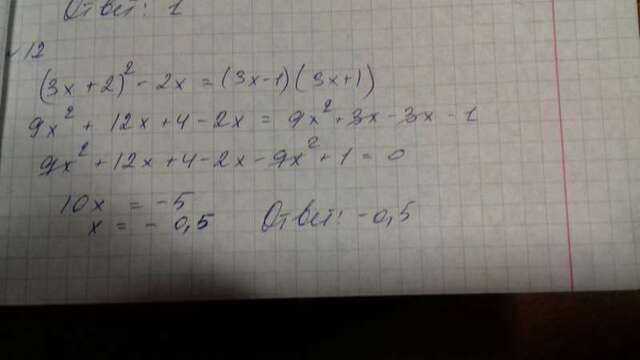 Ответ: 1
12
(3x + 2)² - 2x = (3x-1)(3x+1)
9x² + 12x + 4 - 2x = 9x² + 3x - 3x - 1
9x² + 12x + 4 - 2x - 9x² + 1 = 0
10x = -5
x = - 0,5 Ответ: -0,5